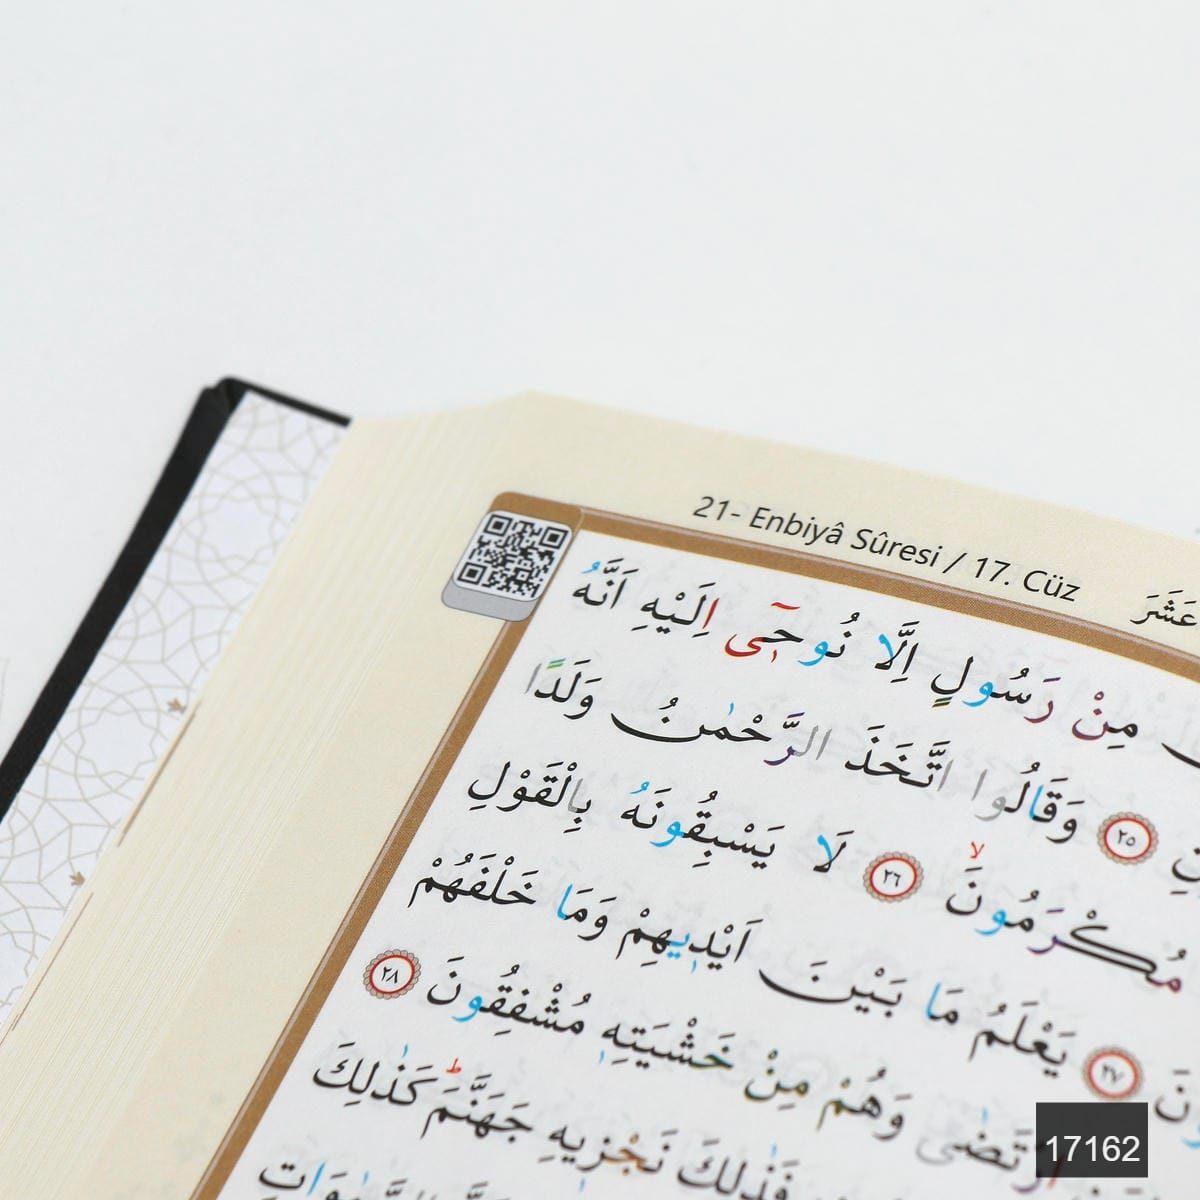 21- Enbiyâ Sûresi / 17. Cüz
عَشَرَ
مِنْ رَسُولٍ اِلَّا نُوحٖٓى اِلَيْهِ اَنَّهُ
٢٥ وَقَالُوا اتَّخَذَ الرَّحْمٰنُ وَلَدًا
مُكْرَمُونَۙ ٢٦ لَا يَسْبِقُونَهُ بِالْقَوْلِ
٢٧ يَعْلَمُ مَا بَيْنَ اَيْدٖيهِمْ وَمَا خَلْفَهُمْ
ارْتَضٰى وَهُمْ مِنْ خَشْيَتِهٖ مُشْفِقُونَ ٢٨
فَذٰلِكَ نَجْزٖيهِ جَهَنَّمَؕ كَذٰلِكَ
17162